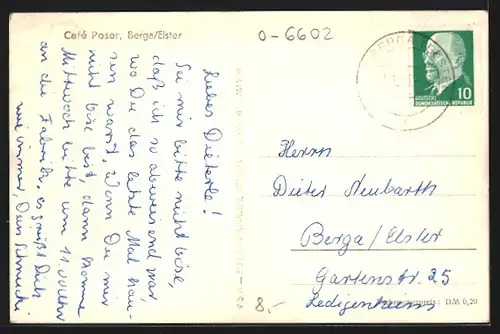 Café Poser, Berga/Elster
0-6602
Liebes Dieterle!
Sei mir bitte nicht böse,
daß ich so abweisend war
wo Du das letzte Mal
warst. Wenn Du mir
nicht böse bist, dann komme
Mittwoch bitte um 11.00 Uhr
an die Fabrik, es grüßt Dich
wie immer, Dein
BERGA
DEUTSCHE
DEMOKRATISCHE REPUBLIK
10
Herrn
Dieter Neubarth
Berga/Elster
Gartenstr. 25
Ledigenheim
8,-
: DM 0,20